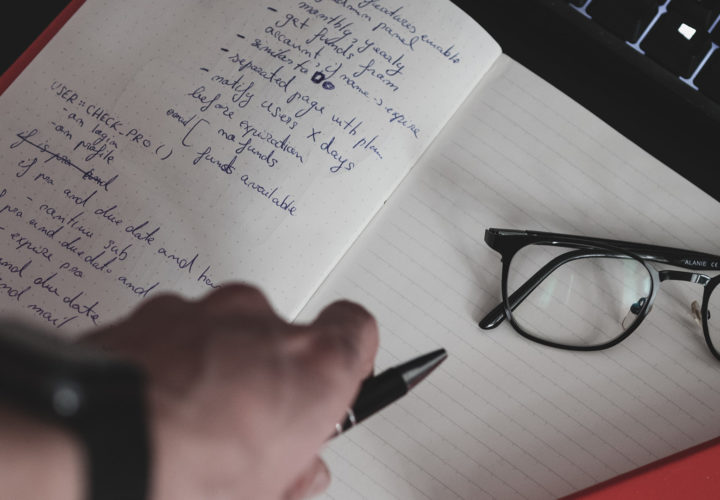 features enable
admin panel
monthly, yearly
- get funds from
account, if name - s expire
- similar to
- separated page with plan
- notify users X days
before expiration
email [ no funds
funds available
USER::CHECK-PRO()
- on login
- on profile
if is pro and
if pro and due date and
- continue sub
pro and due date and
- expire pro
and due date
and mail
ALANIE CE